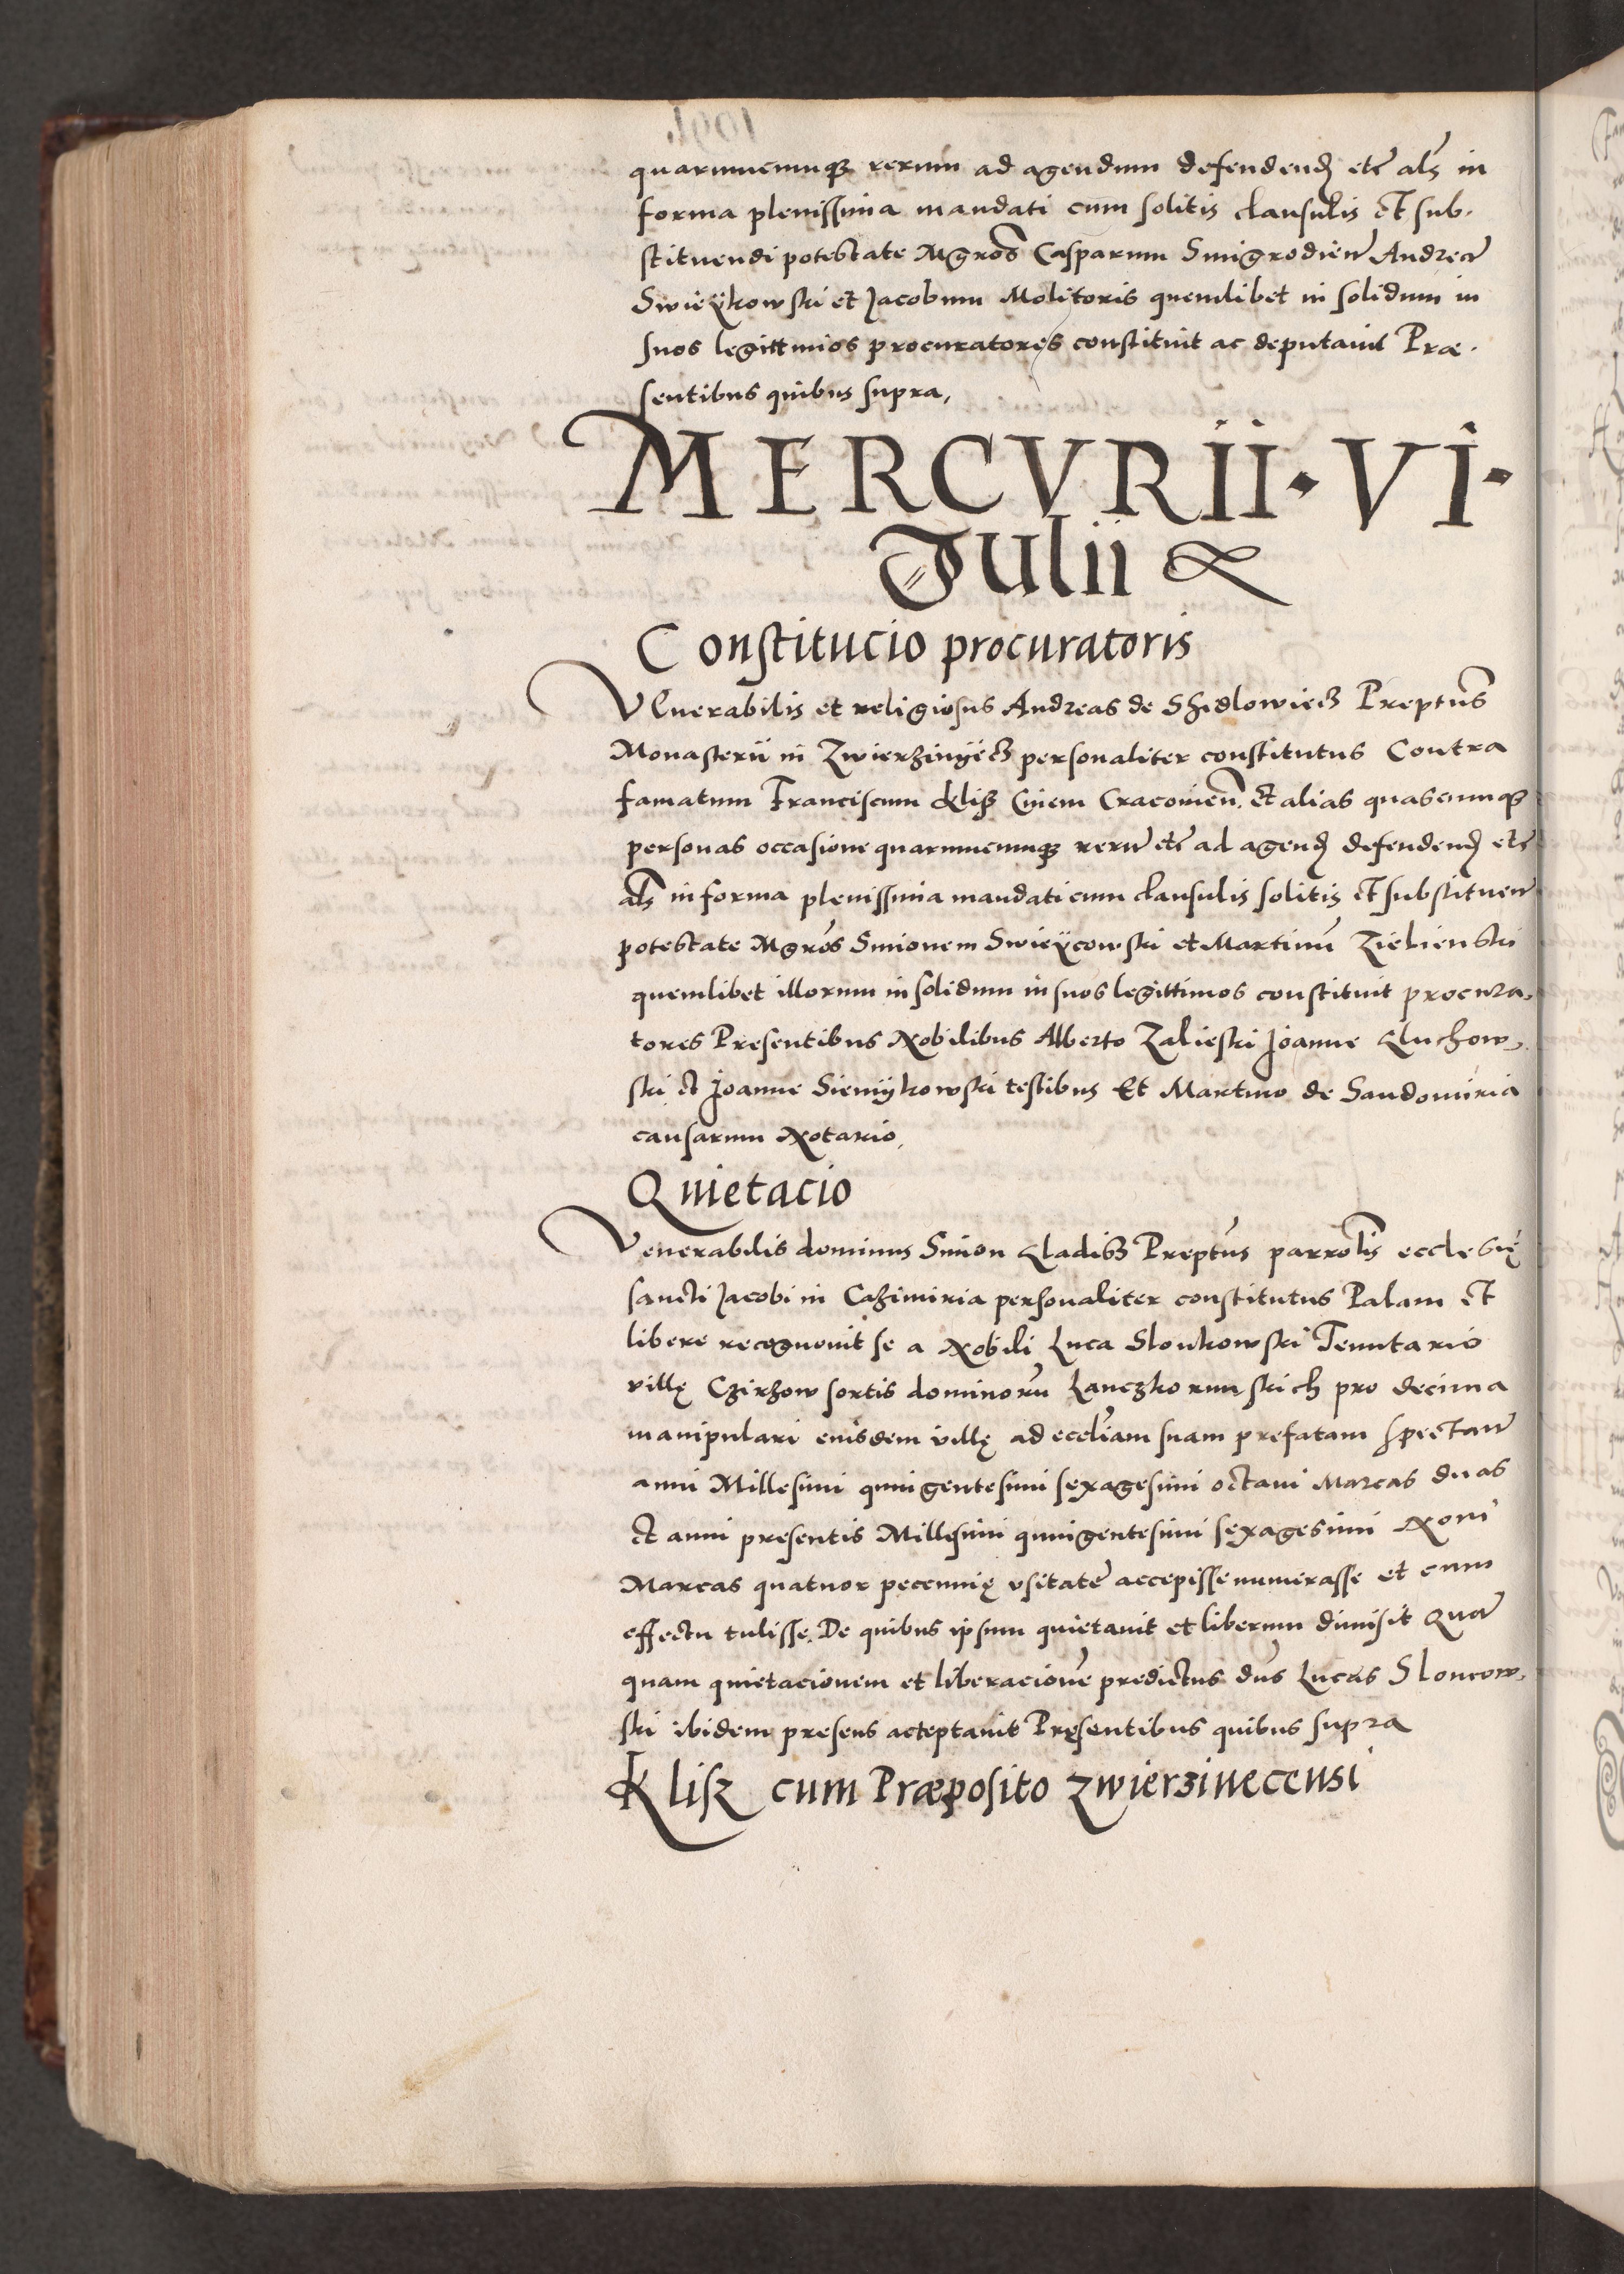 quarumcumque rerum ad agendum defendend etc als in
forma plenissima mandati cum solitis clausulis et sub-
stituendi potestate Mgros Casparum Smigrodien Andream
Swieÿkowski et Jacobum Molitoris quemlibet in solidum in
suos legittimos procuratores constituit ac deputavit Præ-
sentibus quibus supra,
MERCVRII · VI ·
Julii
Constitucio procuratoris
Venerabilis et religiosus Andreas de Shidlowiecz Preptus
Monasterii in Zwierzinÿecz personaliter constitutus Contra
famatum Franciscum Klisz Civem Cracovien. Et alias quascumque
personas occasione quarumcumque rerum etc ad agend defendend etc
als in forma plenissima mandati cum clausulis solitis et substituen
potestate Mgros Simonem Swieÿcowski et Martinu Zielienski
quemlibet illorum in solidum in suos legittimos constituit procura-
tores Presentibus Nobilibus Alberto Zalieski Joanne Gluchow-
ski et Joanne Sienÿkowski testibus Et Martino de Sandomiria
causarum Notario,
Quietacio
Venerabilis dominus Simon Gladisz Preptus parrolis ecclesię
sancti Jacobi in Cazimiria personaliter constitutus Palam et
libere recognovit se a Nobili Luca Slonkowski Tenutario
villę Czirzow sortis dominoru Lanczkorunskich pro decima
manipulari eiusdem villę ad eccliam suam prefatam spectan
anni Millesimi quingentesimi sexagesimi octavi Marcas duas
et anni presentis Millesimi quingentesimi sexagesimi Noni
Marcas quatuor pecunię usitate accepisse numerasse et cum
effectu tulisse. De quibus ipsum quietavit et liberum dimisit Quam
quam quietacionem et liberacione predictus dns Lucas Sloncow-
ski ibidem presens acceptavit Pręsentibus quibus supra
Klisz cum Præposito Zwierzinecensi